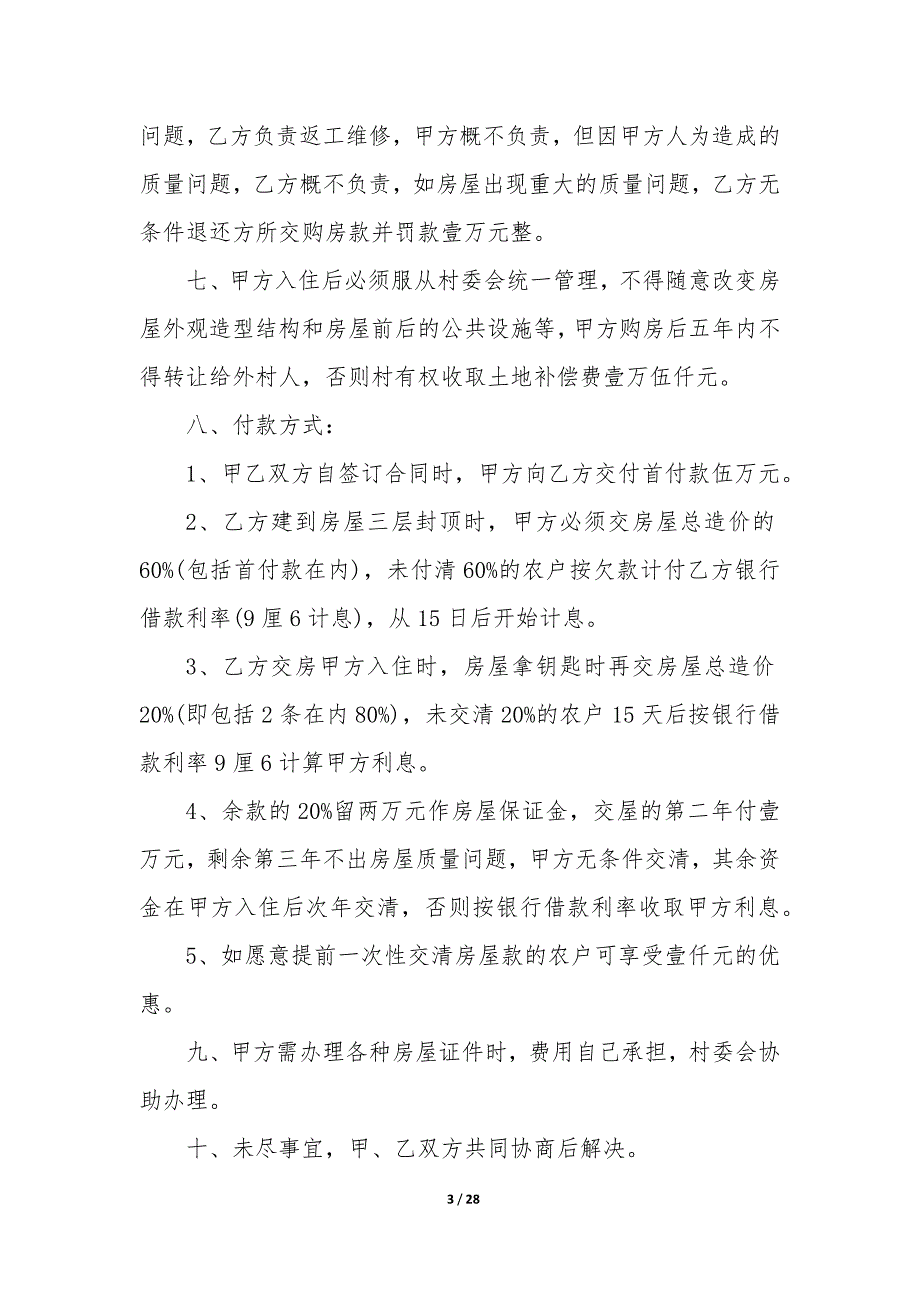 问题，乙方负责返工维修，甲方概不负责，但因甲方人为造成的
质量问题，乙方概不负责，如房屋出现重大的质量问题，乙方无
条件退还方所交购房款并罚款壹万元整。
七、甲方入住后必须服从村委会统一管理，不得随意改变房
屋外观造型结构和房屋前后的公共设施等，甲方购房后五年内不
得转让给外村人，否则村有权收取土地补偿费壹万伍仟元。
八、付款方式：
1、甲乙双方自签订合同时，甲方向乙方交付首付款伍万元。
2、乙方建到房屋三层封顶时，甲方必须交房屋总造价的
60%(包括首付款在内)，未付清60%的农户按欠款计付乙方银行
借款利率(9厘6计息)，从15日后开始计息。
3、乙方交房甲方入住时，房屋拿钥匙时再交房屋总造价
20%(即包括2条在内80%)，未交清20%的农户15天后按银行借
款利率9厘6计算甲方利息。
4、余款的20%留两万元作房屋保证金，交屋的第二年付壹
万元，剩余第三年不出房屋质量问题，甲方无条件交清，其余资
金在甲方入住后次年交清，否则按银行借款利率收取甲方利息。
5、如愿意提前一次性交清房屋款的农户可享受壹仟元的优
惠。
九、甲方需办理各种房屋证件时，费用自己承担，村委会协
助办理。
十、未尽事宜，甲、乙双方共同协商后解决。
3 / 28